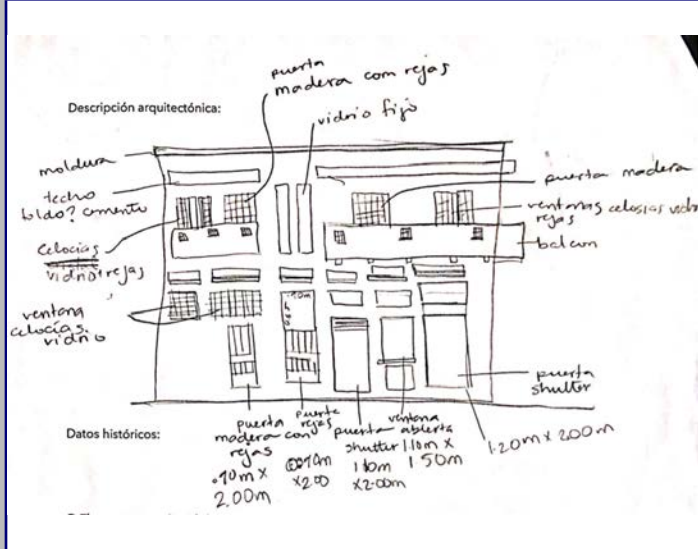 Descripción arquitectónica:
puerta
madera com rejas
vidrio fijo
moldura
techo
toldo? cemento
celocías
vidrio+rejas
ventana
celocías
vidrio
puerta madera
ventanas celosias vidrio
rejas
balcon
puerta
shutter
1.20m x 2.00m
Datos históricos:
puerta
madera con
rejas
.90m x
2.00m
puerta
rejas
x2.00
puerta
shutter
1.10m
x2.00m
ventana
abierta
1.10m x
1.50m